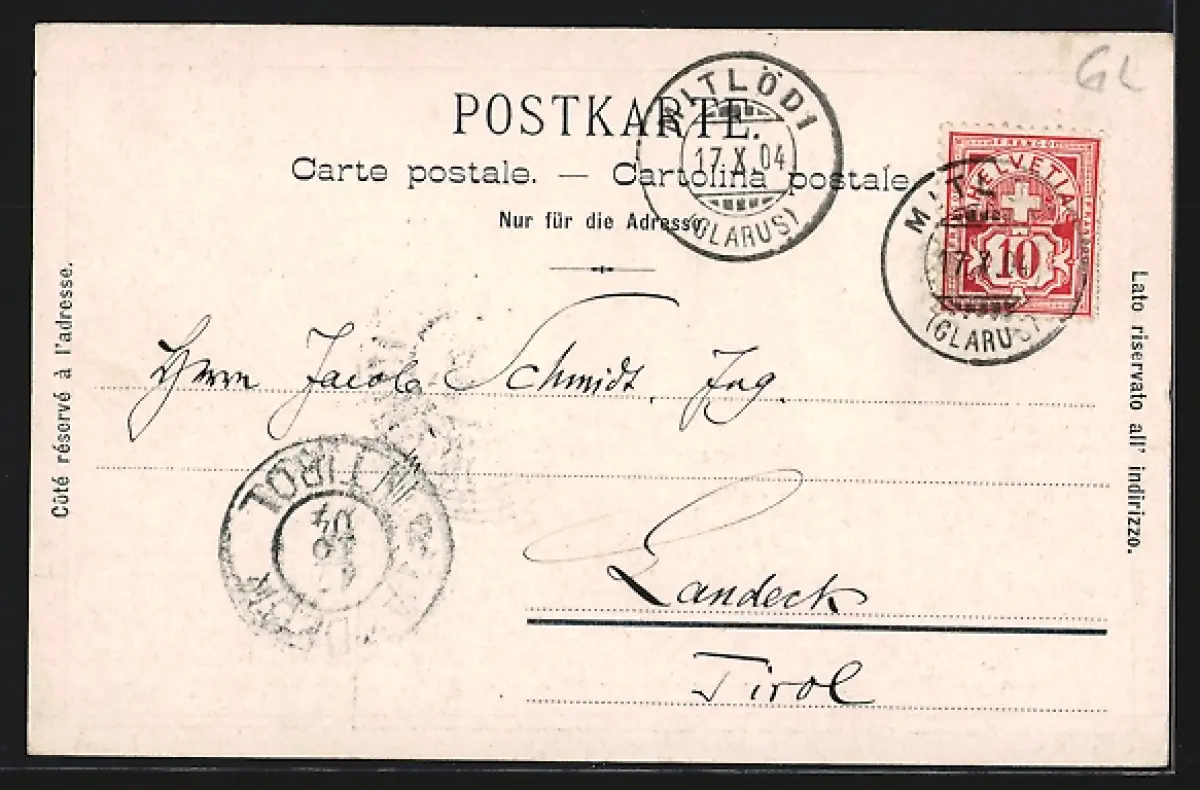 GL
POSTKARTE.
Carte postale. — Cartolina postale.
Nur für die Adresse.
MITLÖDI
17.X.04
(GLARUS)
FRANCO
HELVETIA
10
17.X.04
(GLARUS)
Côté réservé à l'adresse.
Lato riservato all' indirizzo.
Herrn Jacob Schmidt, Ing.
Landeck
Tirol
IN TIROL
04